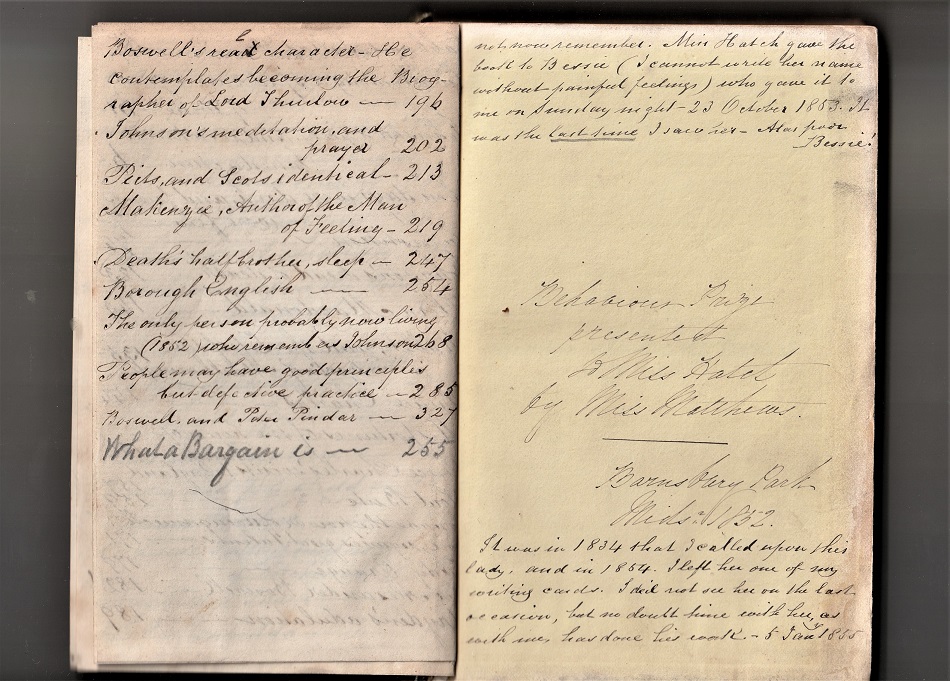 Boswell's real character - He
contemplates becoming the Biog-
rapher of Lord Thurlow — 196
Johnson's meditation, and
prayer 202
Picts, and Scots identical - 213
Makenzie, Author of the Man
of Feeling - 219
Death's half brother, sleep - 247
Borough English — 254
The only person probably now living
(1852) who remembers Johnson 268
People may have good principles
but defective practice - 285
Boswell, and Peter Pindar — 327
What a Bargain is — 255
not now remember. Miss Hatch gave the
book to Bessie (I cannot write her name
without painful feelings) who gave it to
me on Sunday night - 23 October 1853. It
was the last time I saw her - Alas poor
Bessie!
Behaviour Prize
presented
to Miss Hatch
by Miss Matthews.
Barnsbury Park
Mids.r 1852.
It was in 1834 that I called upon this
lady, and in 1854. I left her one of my
writing cards. I did not see her on the last
occasion, but no doubt time with her, as
with me, has done his work. - 5 Jany 1855